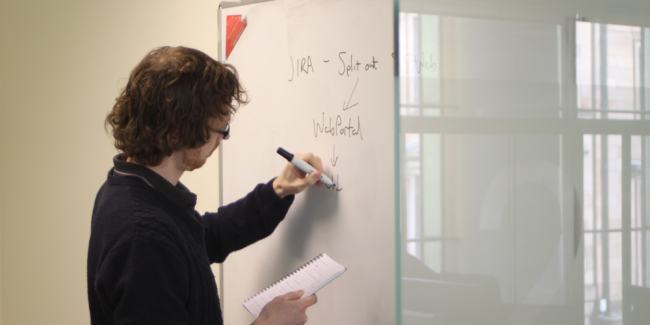 JIRA - Split out Web
WebPortal